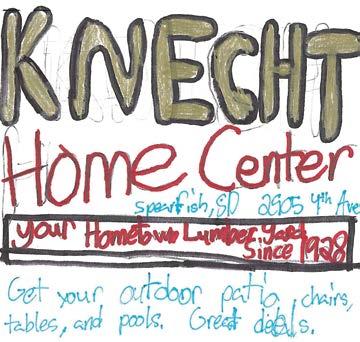 KNECHT
Home Center
spearfish, SD 2905 4th Ave
your Hometown Lumber Yard
Since 1928
Get your outdoor patio, chairs,
tables, and pools. Great deals.